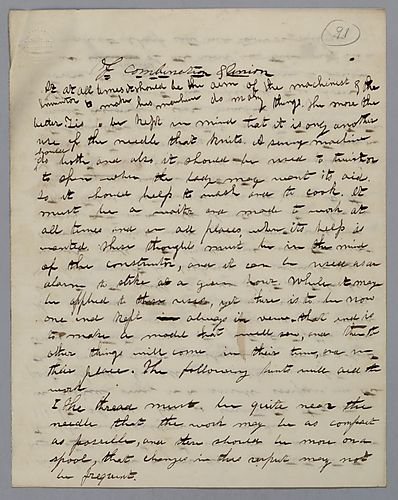 91
Combination & Union
At at all times it should be the aim of the machinest & the
inventor to make his machine do many things. The more the
better Tis to be kept in mind that it is only another
use of the needle that knits. A sewing machine
should
do both and also it should be used to
to spin when the lady may want its aid.
So it should help to wash and to cook. It
must be a and made to work at
all times and in all places when its help is
wanted. These thoughts must be in the mind
of the constructor, and it can be used as an
alarm to strike at a given hour. While it may
be applied to these uses, yet there is to be now
one end kept always in view. that end is
to make a model that will sew, and then the
other things will come in their time, one in
their place. The following hints will aid the
work
I The thread must be quite near the
needle that the work may be as compact
as possible, and there should be more on a
spool, that changes in this respect may not
be frequent.